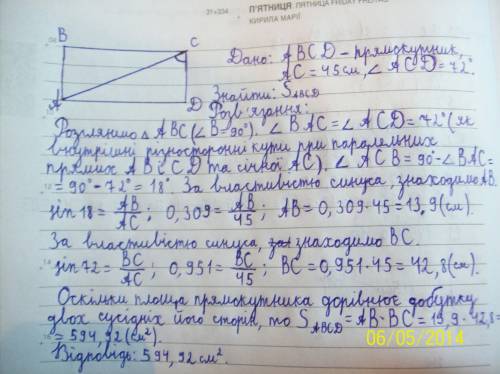 31+334
П'ЯТНИЦЯ ПЯТНИЦА FRIDAY FREITAG
КИРИЛА МАРІЇ
B
C
A
D
Дано: ABCD – прямокутник,
AC = 45 см, ∠ ACD = 72°
Знайти: S ABCD
Розв'язання:
Розглянемо Δ ABC (∠B = 90°). ∠ BAC = ∠ ACD = 72° (як
внутрішні різносторонні кути при паралельних
прямих AB і CD та січної AC). ∠ ACB = 90 - ∠BAC =
= 90° - 72° = 18°. За властивістю синуса, знаходимо AB.
sin 18 = AB/AC; 0,309 = AB/45; AB = 0,309 · 45 = 13,9 (см).
За властивістю синуса, знаходимо BC.
sin 72 = BC/AC; 0,951 = BC/45; BC = 0,951 · 45 = 42,8 (см).
Оскільки площа прямокутника дорівнює добутку
двох сусідніх його сторін, то S ABCD = AB · BC = 13,9 · 42,8 =
= 594,92 (см²).
Відповідь: 594,92 см².
06/05/2014